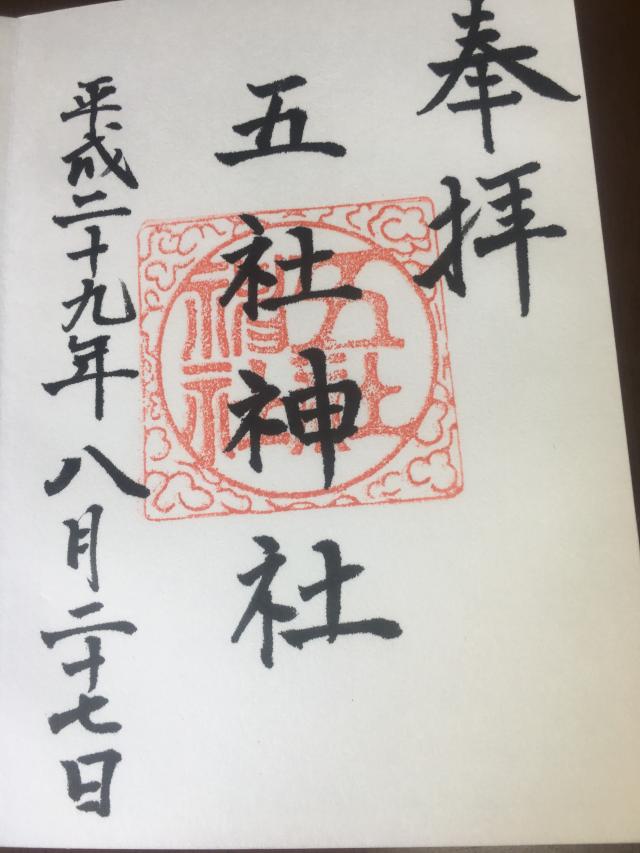 奉拝
五社神社
平成二十九年八月二十七日